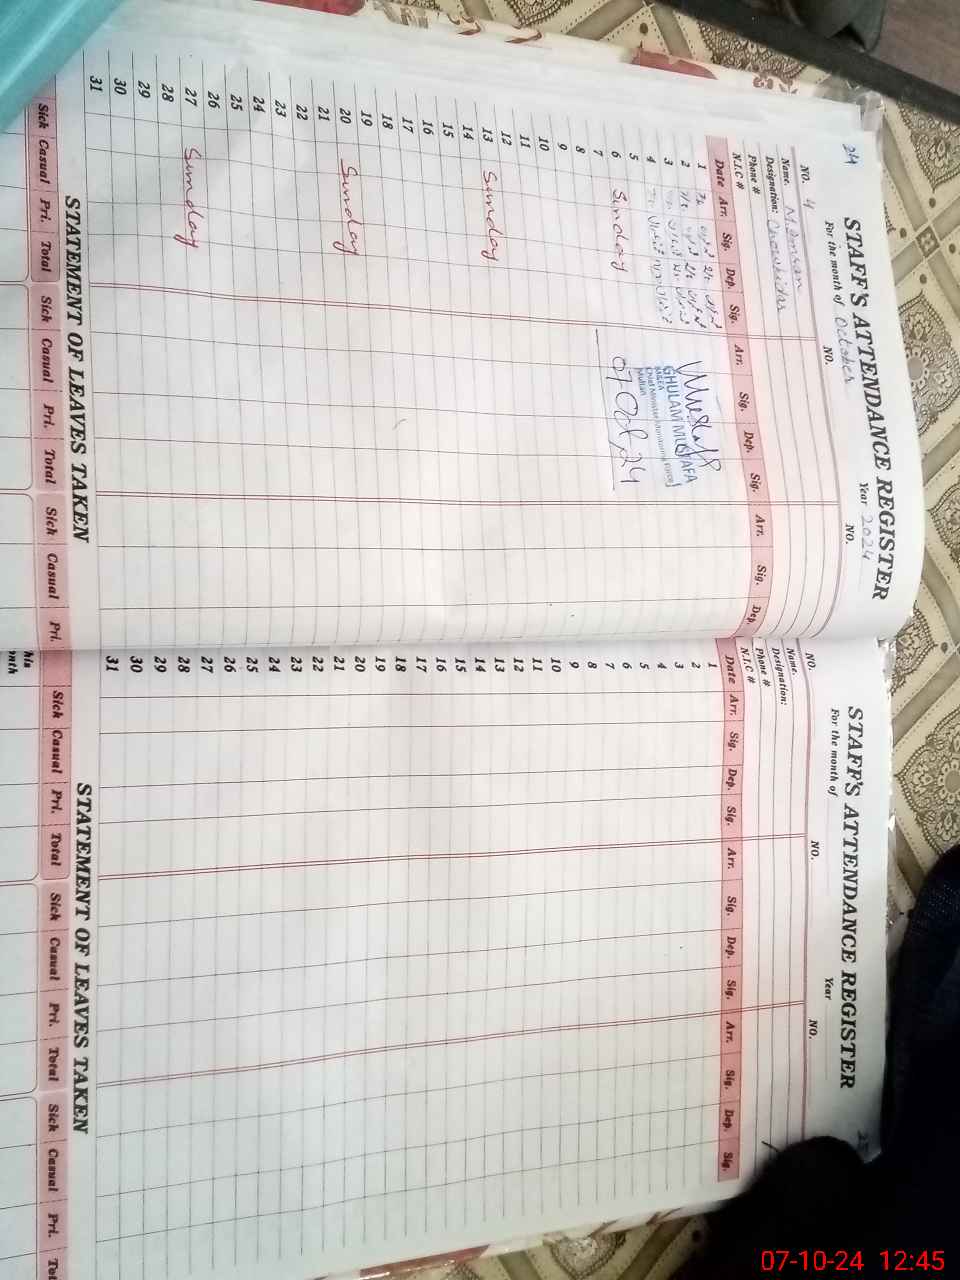 24
STAFF'S ATTENDANCE REGISTER
For the month of October Year 2024
NO. 4 NO. NO.
Name.
Designation: Chowkidar
Phone #
N.I.C #
Date Arr. Sig. Dep. Sig. Arr. Sig. Dep. Sig. Arr. Sig. Dep.
1
2
3
4
5
6 Sunday
7
8
9
10
11
12
13 Sunday
14
15
16
17
18
19
20 Sunday
21
22
23
24
25
26
27 Sunday
28
29
30
31
GHULAM MUSTAFA
MEA
Chief Minister Monitoring Force
Multan
07 Oct, 24
STATEMENT OF LEAVES TAKEN
Sick Casual Pri. Total Sick Casual Pri. Total Sick Casual Pri.
STAFF'S ATTENDANCE REGISTER
For the month of Year
NO. NO. NO.
Name.
Designation:
Phone #
N.I.C #
Date Arr. Sig. Dep. Sig. Arr. Sig. Dep. Sig. Arr. Sig. Dep. Sig.
1
2
3
4
5
6
7
8
9
10
11
12
13
14
15
16
17
18
19
20
21
22
23
24
25
26
27
28
29
30
31
STATEMENT OF LEAVES TAKEN
Sick Casual Pri. Total Sick Casual Pri. Total Sick Casual Pri.
07-10-24 12:45